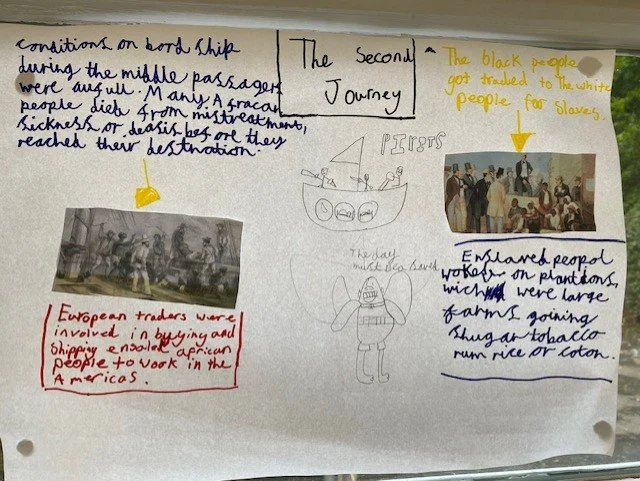 conditions on bord ship
during the middle passagers
were aufull. Many Afracan
people dieb from mistreatment,
sickness or deasis before they
reached their destination.
The Second
Journey
The black people
got traded to the white
people for slaves.
PIRITS
European traders were
involved in byying and
shipping ensalad african
people to wook in the
Americas.
The day
must Bea saved
Enslaved peopol
wokes on plantdons,
wich were large
farms goining
shugar tobacco
rum rice or coton.